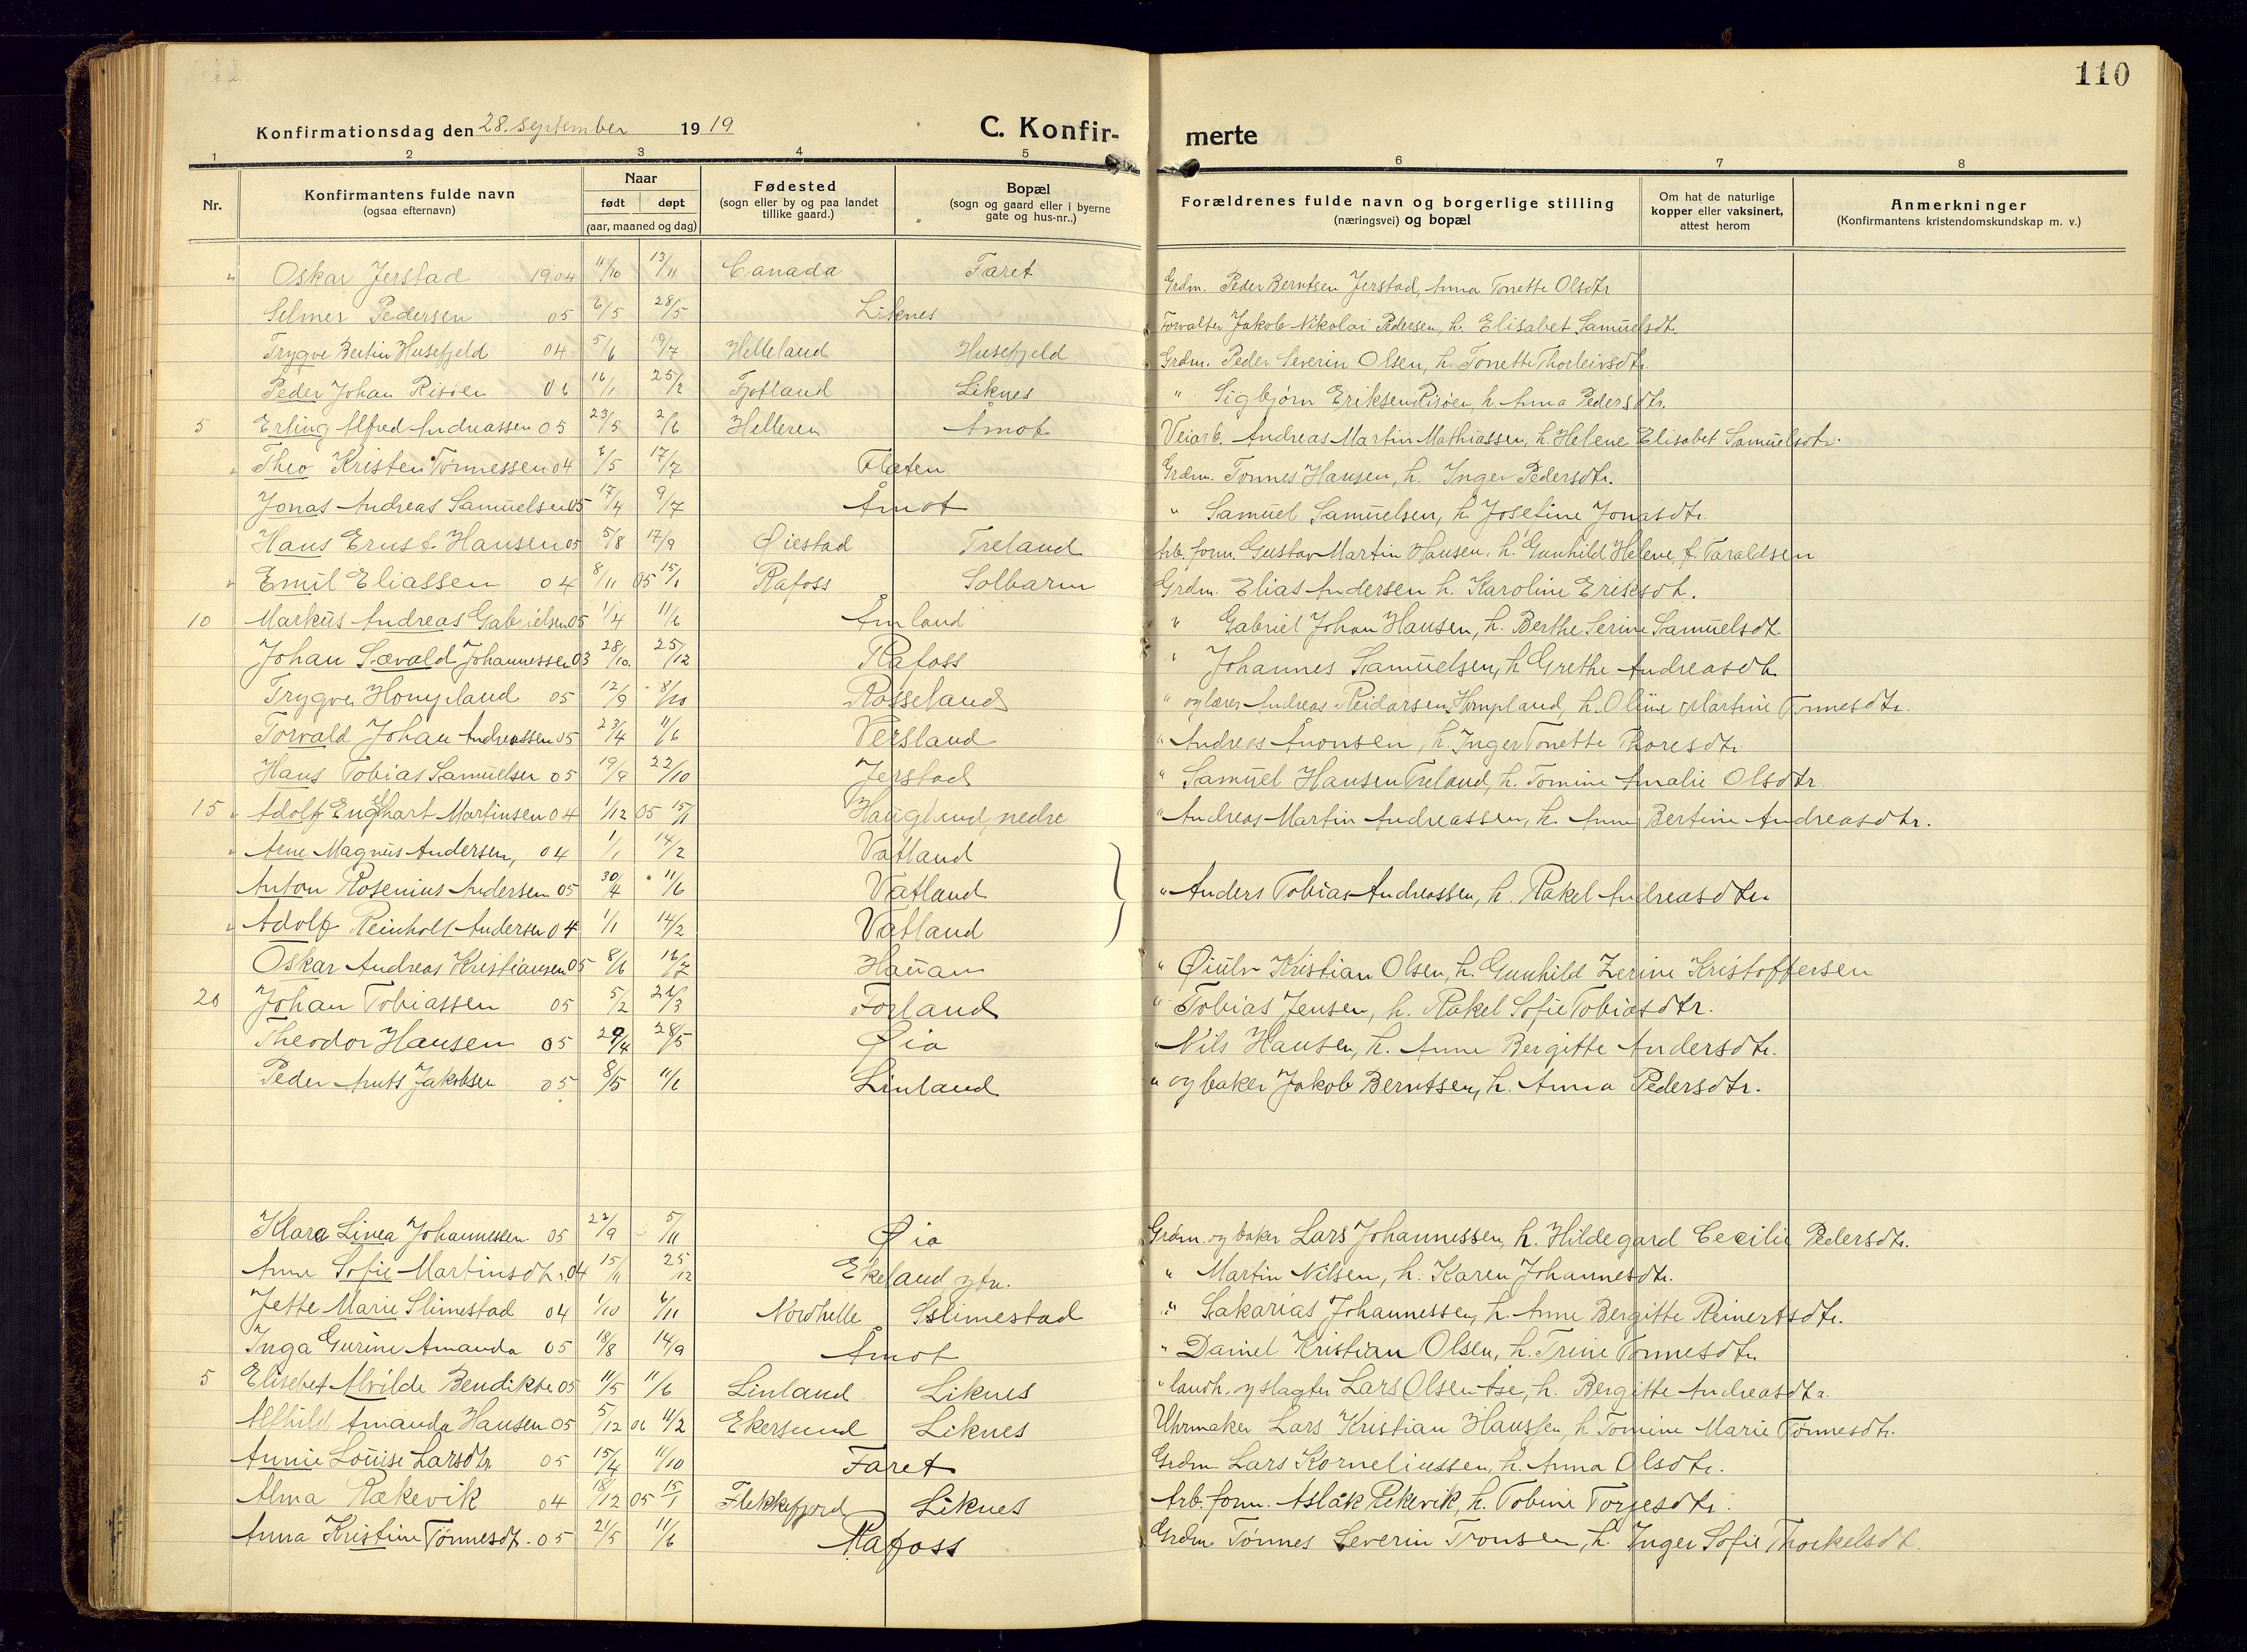 110
Konfirmationsdag den 28. september 1919
C. Konfir-
merte
1 2 3 4 5 6 7 8
Nr.
Konfirmantens fulde navn
(ogsaa efternavn)
Naar
født døpt
(aar, maaned og dag)
Fødested
(sogn eller by og paa landet
tillike gaard.)
Bopæl
(sogn og gaard eller i byerne
gate og hus-nr..)
Forældrenes fulde navn og borgerlige stilling
(næringsvei) og bopæl
Om hat de naturlige
kopper eller vaksinert,
attest herom
Anmerkninger
(Konfirmantens kristendomskundskap m. v.)
" Oskar Jerstad 1904 11/10 13/11 Canada Faret Grdm. Peder Berntsen Jerstad, Anna Tonette Olsdtr
Selmer Pedersen 05 6/5 28/5 Liknes Forvalter Jakob Nikolai Pedersen, h. Elisabet Samuelsdt.
Trygve Bertin Husefjeld 04 5/6 19/7 Helleland Husefjeld Grdm. Peder Severin Olsen, h. Tonette Thorleivsdtr.
Peder Johan Risøen 06 16/1 25/2 Fjotland Liknes " Sigbjørn Eriksen Risøen, h. Anna Pedersdtr.
5 Erling Alfred Andreassen 05 23/5 2/6 Helleren Åmot Veiarb. Andreas Martin Mathiassen, h. Helene Elisabet Samuelsdtr.
" Theo Kristen Tønnessen 04 7/5 17/7 Flaten Grdm. Tønnes Hansen, h. Inger Pedersdtr.
Jonas Andreas Samuelsen 05 17/4 9/7 Åmot " Samuel Samuelsen, h. Josefine Jonasdtr.
Hans Ernst Hansen 05 5/8 17/9 Øiestad Treland Arb. form. Gustav Martin Hansen, h. Gunhild Helene f. Taraldsen
" Emil Eliassen 04 8/11 05 15/1 Rafoss Solbarm Grdm. Elias Andersen h. Karoline Eriksdt.
10 Markus Andreas Gabrielsen 05 1/4 11/6 Åmland " Gabriel Johan Hansen, h. Berthe Serine Samuelsdt.
Johan Sævald Johannessen 03 28/10. 25/12 Rafoss " Johannes Samuelsen, h. Grethe Andreasdtr.
Trygve Hompland 05 12/9 8/10 Rosseland " og lærer Andreas Reidarsen Hompland, h. Oline Martine Tønnesdtr.
Torvald Johan Andreassen 05 23/4 11/6 Versland " Andreas Aanonsen, h. Inger Tonette Thoresdtr.
Hans Tobias Samuelsen 05 19/9 22/10 Jerstad " Samuel Hansen Treland, h. Tomine Amalie Olsdtr.
15 " Adolf Engelhart Martinsen 04 1/12 05 15/1 Haugland, nedre " Andreas Martin Andreassen, h. Anne Bertine Andreasdtr.
" Arne Magnus Andersen, 04 1/1 14/2 Vatland
Anton Rosenius Andersen 05 30/4 11/6 Vatland " Anders Tobias Andreassen, h. Rakel Andreasdtr.
" Adolf Reinholt Andersen 04 1/1 14/2 Vatland
Oskar Andreas Kristiansen 05 8/6 16/7 Haŭan " Øiulv Kristian Olsen, h. Gunhild Zerine Kristoffersen
20 Johan Tobiassen 05 5/2 22/3 Forland " Tobias Jensen, h. Rakel Sofie Tobiasdtr.
Theodor Hansen 05 29/4 28/5 Øia " Nils Hansen, h. Anne Bergitte Andersdtr.
Peder Ants Jakobsen 05 8/5 11/6 Linland " og baker Jakob Berntsen, h. Anna Pedersdtr.
Klara Linea Johannessen 05 22/9 5/11 Øia Grdm. og baker Lars Johannessen, h. Hildegard Cecilie Pedersdtr.
Anne Sofie Martinsdtr. 04 15/11 25/12 Ekeland ytre. " Martin Nilsen, h. Karen Johannesdtr.
Jette Marie Slimestad 04 1/10 6/11 Nordhelle Sslimestad " Sakarias Johannessen, h. Anne Bergitte Reinertsdtr.
Inga Gurine Amanda 05 18/8 14/9 Åmot " Daniel Kristian Olsen, h. Trine Tønnesdtr.
5 Elisebet Alvilde Bendikte 05 11/5 11/6 Linland Liknes " landh. og slagter Lars Olsen Åse, h. Bergitte Andreasdtr.
Alfhild Amanda Hansen 05 5/12 06 11/2 Ekersund Liknes Uhrmaker Lars Kristian Hanssen, h. Tomine Marie Tønnesdtr.
Annie Louise Larsdtr. 05 15/4 11/10 Faret Grdm. Lars Korneliussen, h. Anna Olsdtr.
Alma Rækevik 04 18/12 05 15/1 Flekkefjord Liknes Arb. form. Aslak Rekevik, h. Tobine Torjesdtr.
Anna Kristine Tønnesdt. 05 21/5 11/6 Rafoss Grdm. Tønnes Severin Tronsen, h. Inger Sofie Thorkelsdt.